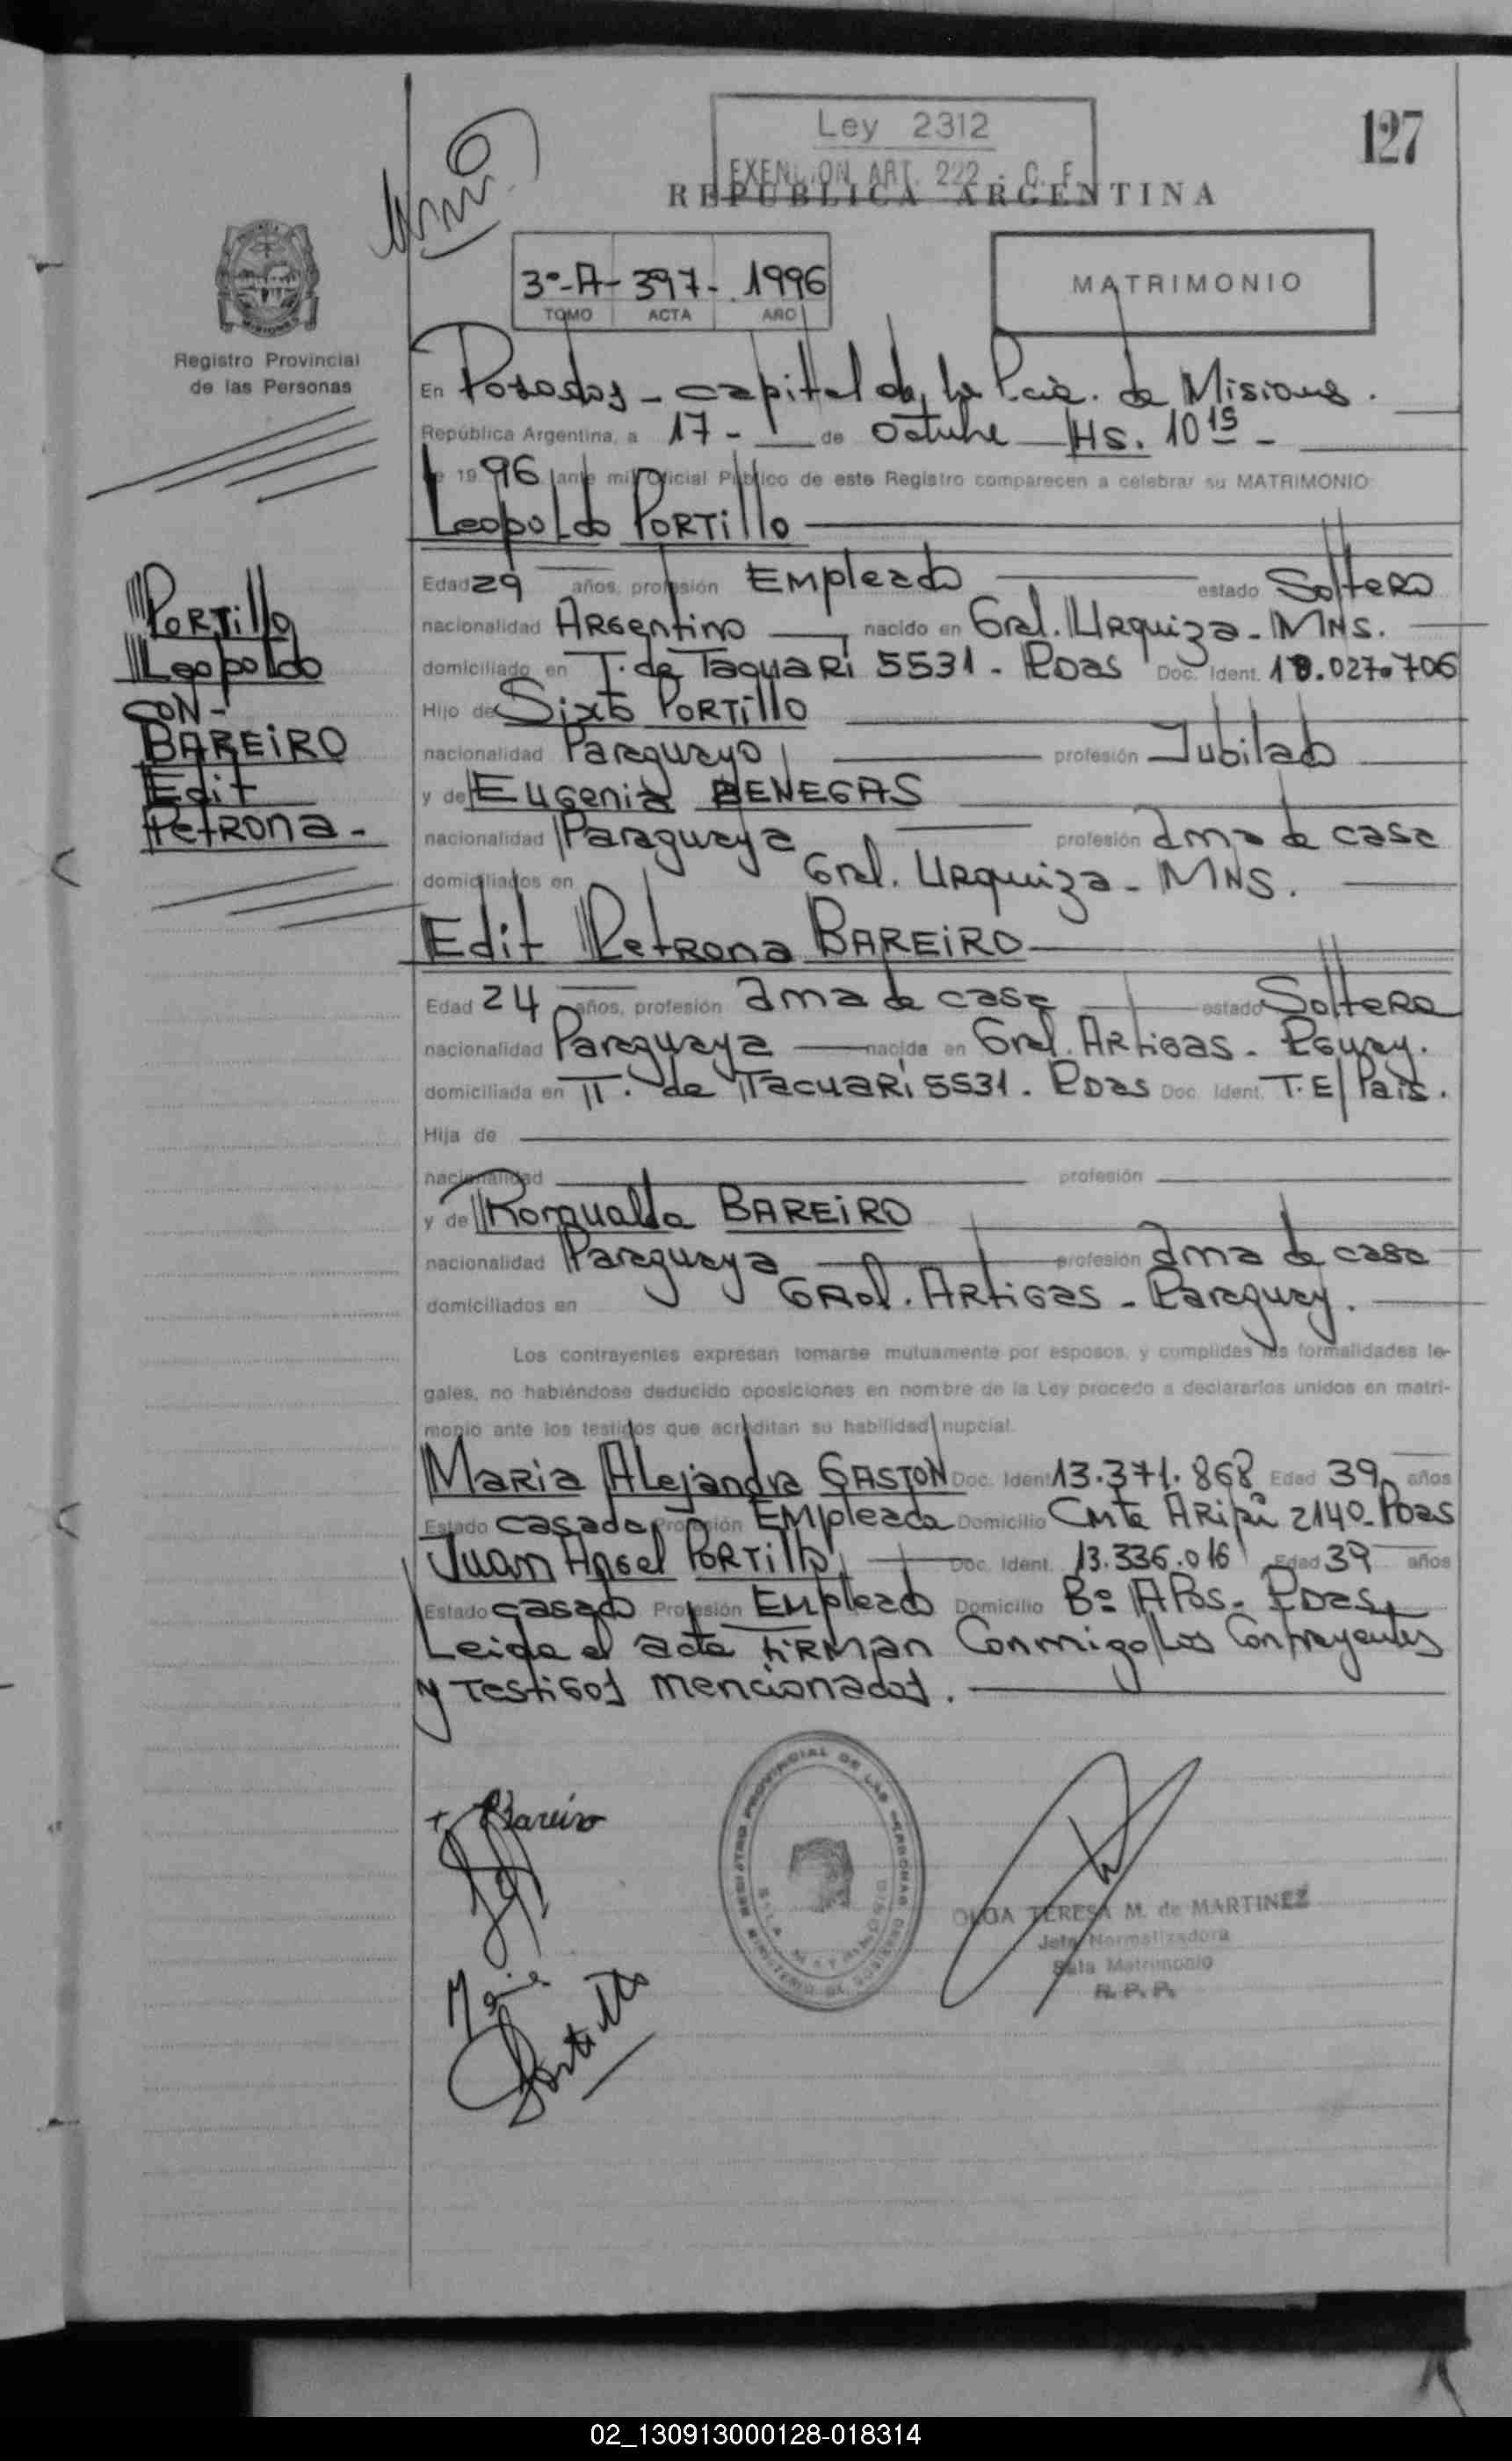 127
Ley 2312
EXENCION ART. 222 - C. F.
REPUBLICA ARGENTINA
3º-A- 397- 1996
TOMO ACTA AÑO
MATRIMONIO
Registro Provincial
de las Personas
En Posadas - capital de la Pcia. de Misiones.
República Argentina, a 17 - de Octubre Hs. 10 15 -
de 19 96 ante mi, Oficial Público de este Registro comparecen a celebrar su MATRIMONIO
Leopoldo PORTillo
Portillo
Leopoldo
CON-
BAREiRO
Edit
Petrona-
Edad 29 años, profesión Empleado estado Soltero
nacionalidad Argentino nacido en Gral. Urquiza - MNS.
domiciliado en T. de Taquari 5531 - Pdas Doc. Ident. 18.027.706
Hijo de Sixto PORTillo
nacionalidad Paraguayo profesión Jubilado
y de Eugenia BENEGAS
nacionalidad Paraguaya profesión ama de casa
domiciliados en Gral. Urquiza - MNS.
Edit Petrona BAREiRO
Edad 24 años, profesión ama de casa estado Soltera
nacionalidad Paraguaya nacida en Gral. Artigas - Pguay.
domiciliada en T. de Tacuari 5531 - Pdas Doc. Ident. T.E/Pais.
Hija de
nacionalidad profesión
y de Romualda BAREiRO
nacionalidad Paraguaya profesión ama de casa
domiciliados en Gral. Artigas - Paraguay.
Los contrayentes expresan tomarse mutuamente por esposos, y cumplidas las formalidades le-
gales, no habiéndose deducido oposiciones en nombre de la Ley procedo a declararlos unidos en matri-
monio ante los testigos que acreditan su habilidad nupcial.
Maria Alejandra GASTON Doc. Ident 13.371.868 Edad 39 años
Estado casada Profesión Empleada Domicilio 2140- Pdas
Juan Angel PORTillo Doc. Ident. 13.336.016 Edad 39 años
Estado casado Profesión Empleado Domicilio Bº APos - Pdas
Leida el acta firman Conmigo los Contrayentes
y testigos mencionados.
Bareiro
Portillo
REGISTRO PROVINCIAL DE LAS PERSONAS
OLGA TERESA M. de MARTINEZ
Jefa Normalizadora
Sala Matrimonio
R. P. P.
02_130913000128-018314